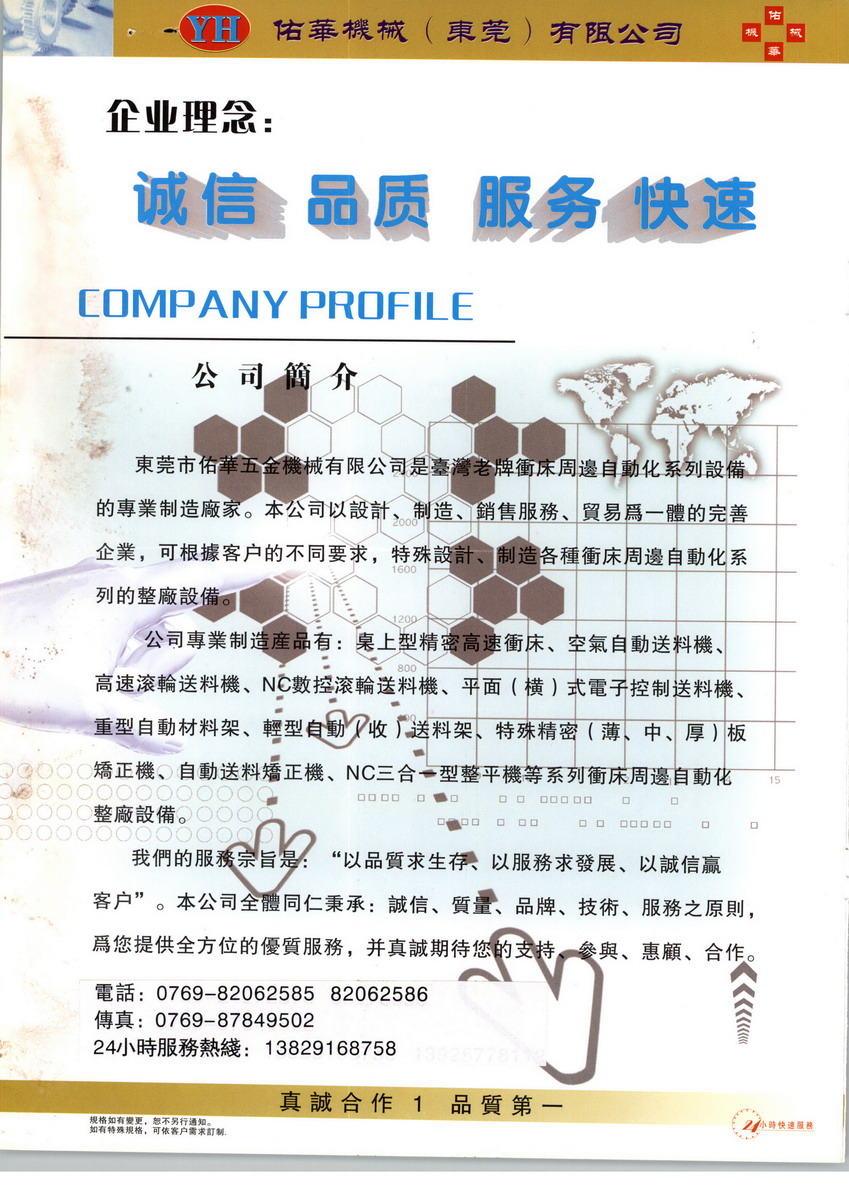 YH 佑華機械（東莞）有限公司
佑
機 械
華
企业理念：
诚信 品质 服务 快速
COMPANY PROFILE
公司簡介
東莞市佑華五金機械有限公司是臺灣老牌衝床周邊自動化系列設備
的專業制造廠家。本公司以設計、制造、銷售服務、貿易爲一體的完善
企業，可根據客户的不同要求，特殊設計、制造各種衝床周邊自動化系
列的整廠設備。
公司專業制造産品有：桌上型精密高速衝床、空氣自動送料機、
高速滚輪送料機、NC數控滚輪送料機、平面（横）式電子控制送料機、
重型自動材料架、輕型自動（收）送料架、特殊精密（薄、中、厚）板
矯正機、自動送料矯正機、NC三合一型整平機等系列衝床周邊自動化
整廠設備。
我們的服務宗旨是：“以品質求生存、以服務求發展、以誠信贏
客户”。本公司全體同仁秉承：誠信、質量、品牌、技術、服務之原則，
爲您提供全方位的優質服務，并真誠期待您的支持、參與、惠顧、合作。
2000
1600
1200
800
15
電話：0769-82062585 82062586
傳真：0769-87849502
24小時服務熱綫：13829168758
真誠合作 1 品質第一
規格如有變更，恕不另行通知。
如有特殊規格，可依客户需求訂制.
24小時快速服務